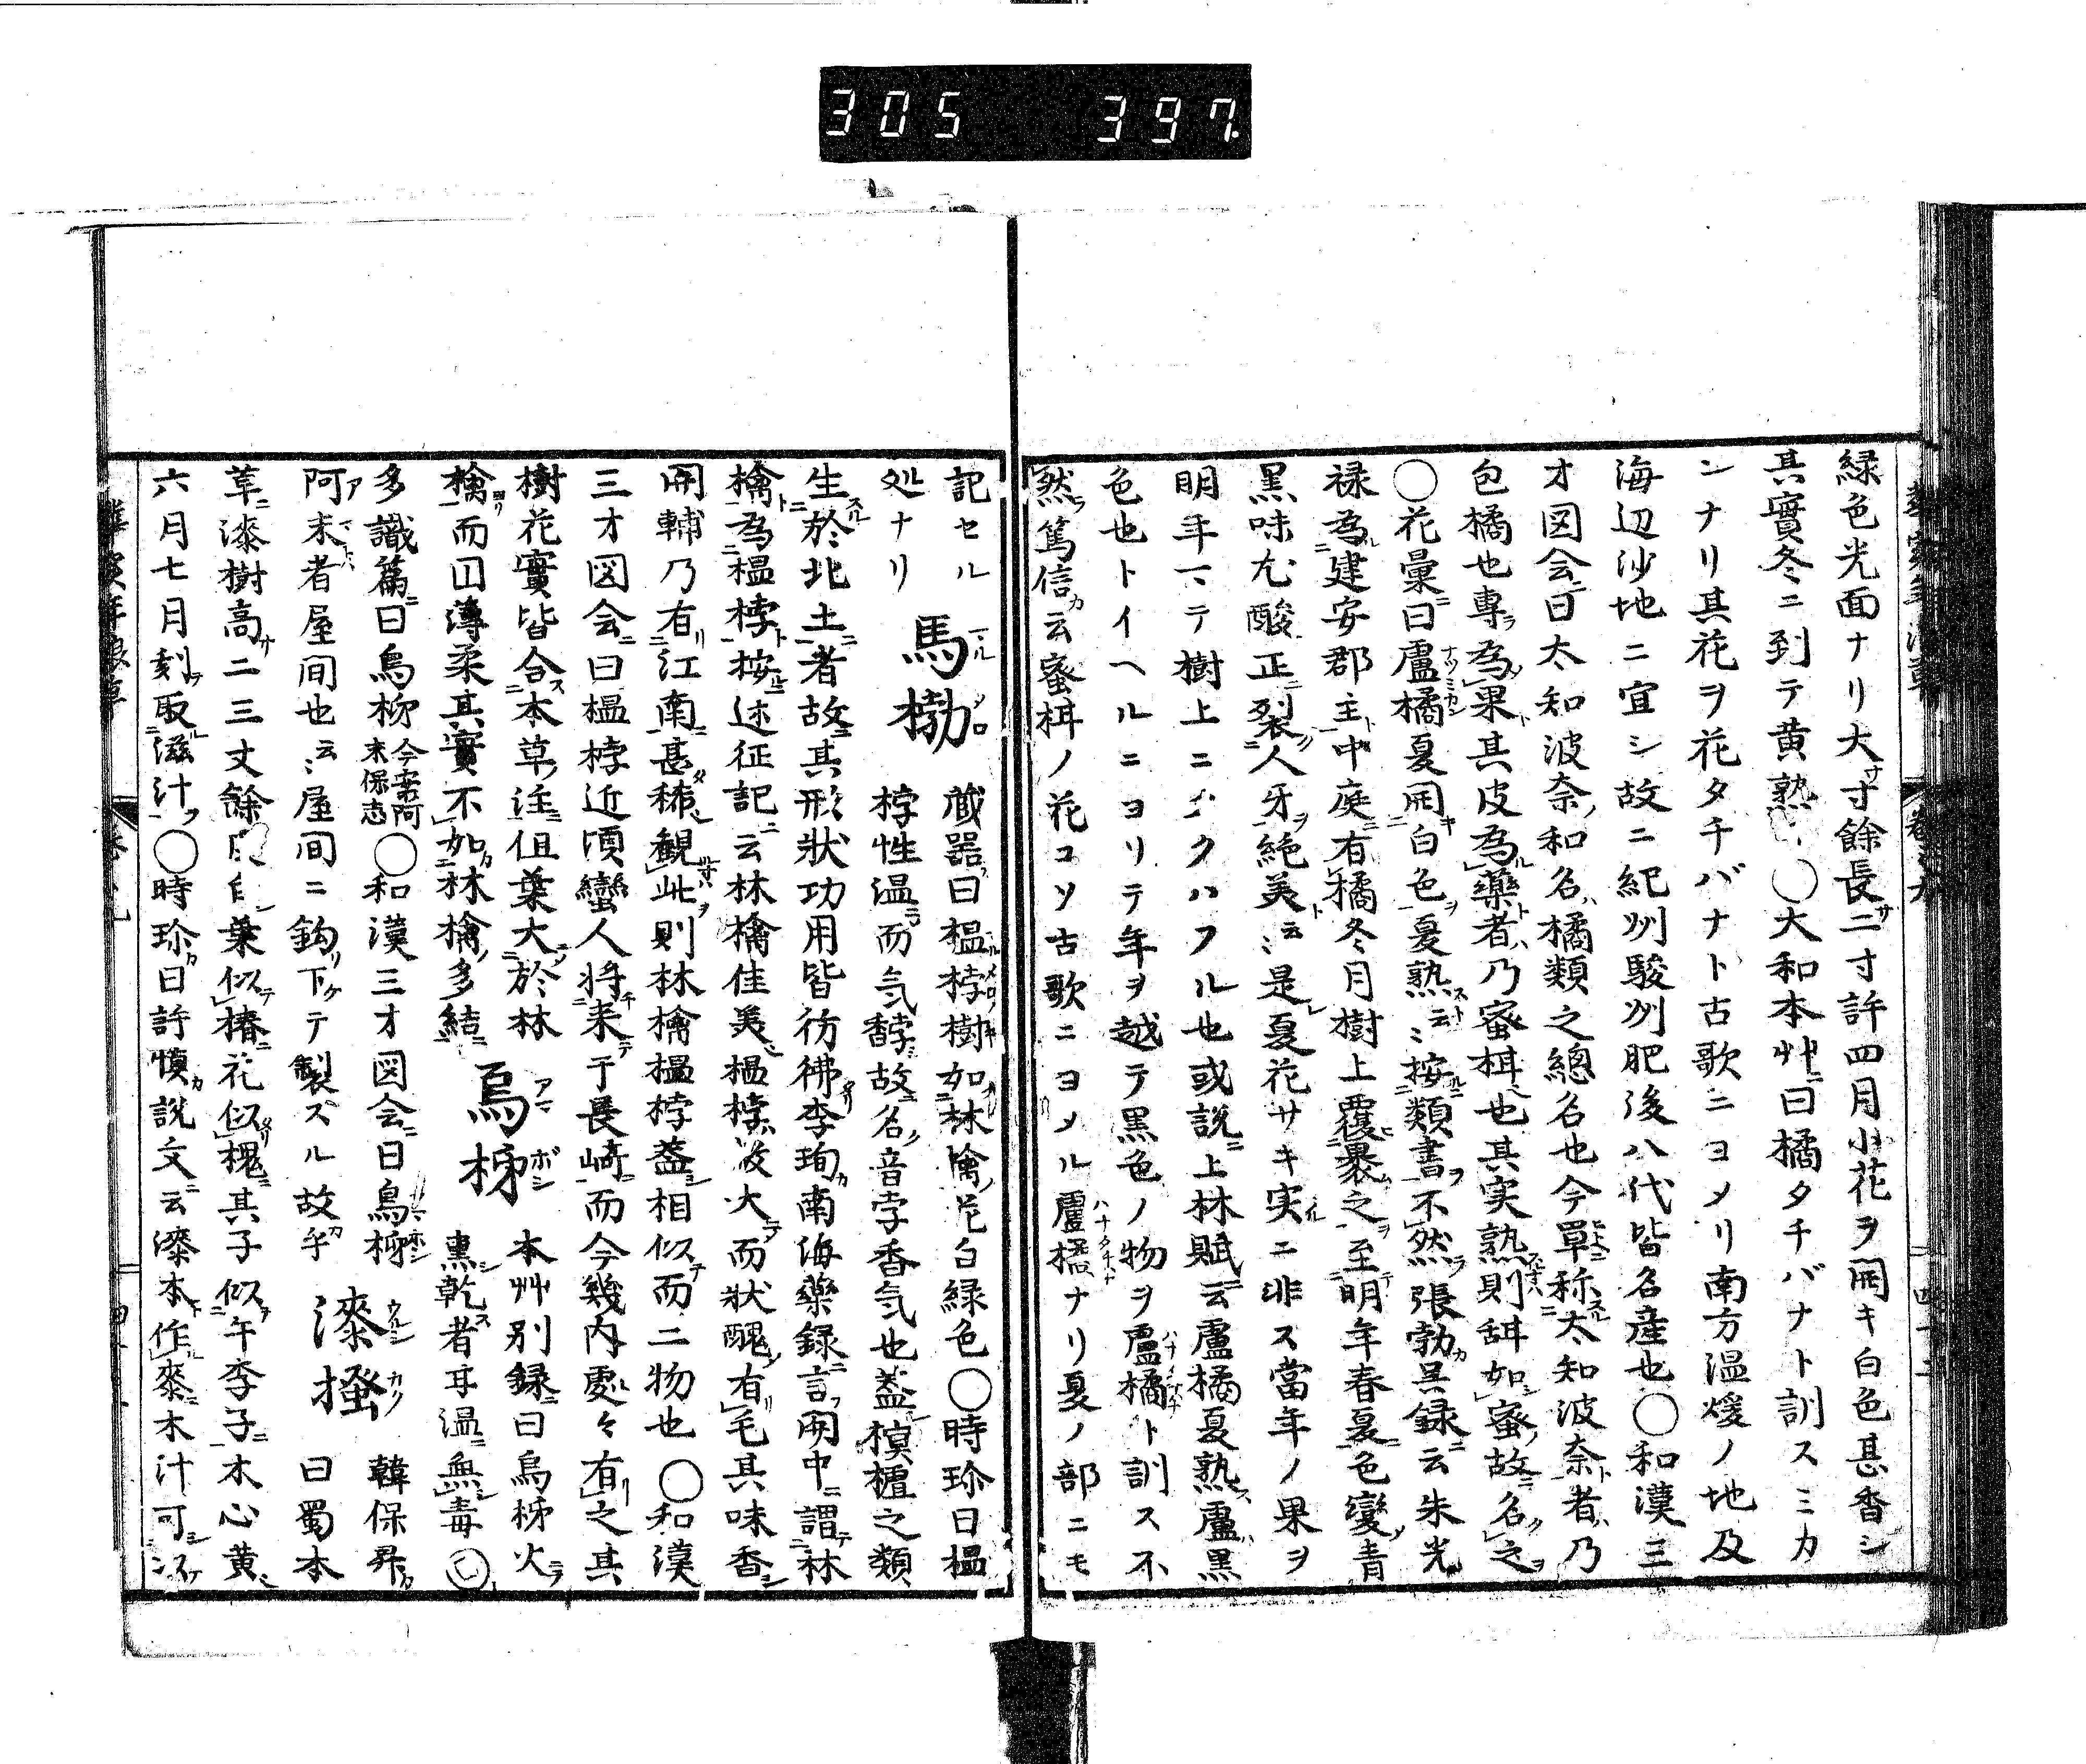 305 397
緑色光面ナリ大サ寸餘長サ二寸許四月小花ヲ開キ白色甚香シ
其實冬ニ到テ黄熟 ○大和本艸ニ曰橘タチバナト訓スミカ
ンナリ其花ヲ花タチバナト古歌ニヨメリ南方温煖ノ地及
海辺沙地ニ宜シ故ニ紀州駿州肥後八代皆名産也○和漢三
才図会ニ曰太知波奈ノ和名ハ橘類之總名也今單称太知波奈者ハ乃
包橘也専為果其皮為藥者ハ乃蜜柑也其実熟則甜如蜜故ニ名之
○花彙ニ曰盧橘ナツミカン夏開白色ヲ夏熟スト云〻按類書不然張勃呉録ニ云朱光
禄為建安郡主中庭有橘冬月樹上覆裹之至明年春夏色變青
黒味尤酸正裂人牙ヲ絶美ト云〻是レ夏花サキ実ニ非ス當年ノ果ヲ
明年マテ樹上ニタクハフル也或説ニ上林賦云盧橘夏熟盧ハ黒
色也トイヘルニヨリテ年ヲ越テ黒色ノ物ヲ盧橘ト訓ス不
然篤信カ云蜜柑ノ花コソ古歌ニヨメル盧橘ハナタチハナナリ夏ノ部ニモ
記セル 馬檄 蔵器曰榲桲樹如林檎花白緑色○時珍曰榲
処ナリ 桲性温而気馞故ニ名ノ音孛香気也蓋榠樝之類
生於北土者故其形状功用皆彷彿李珣カ南海藥録言關中ニ謂林
檎為榲桲按述征記ニ云林檎佳美榲桲 大而状醜有毛其味香
關輔乃有江南甚稀觀此則林檎榲桲蓋相似而二物也○和漢
三才図会ニ曰榲桲近頃蠻人将来于長崎而今幾内處々有之其
樹花實皆合本草ノ注ニ但葉大於林
檎而 薄柔其實不如林檎ノ多結 烏柹アマボシ 本艸別録ニ曰烏柹火
多識篇ニ曰烏柹今案阿末保志○和漢三才図会ニ曰烏柹 熏乾者耳温無毒○
阿末者屋間也云〻屋間ニ鈎下ケテ製スル故乎 漆搔ウルシカク 韓保昇カ
草ニ漆樹高サ二三丈餘 葉似椿花似槐其子似午李子木心黄 曰蜀本
六月七月刻取滋汁ヲ○時珍カ曰許慎カ説文ニ云漆本作桼木汁可